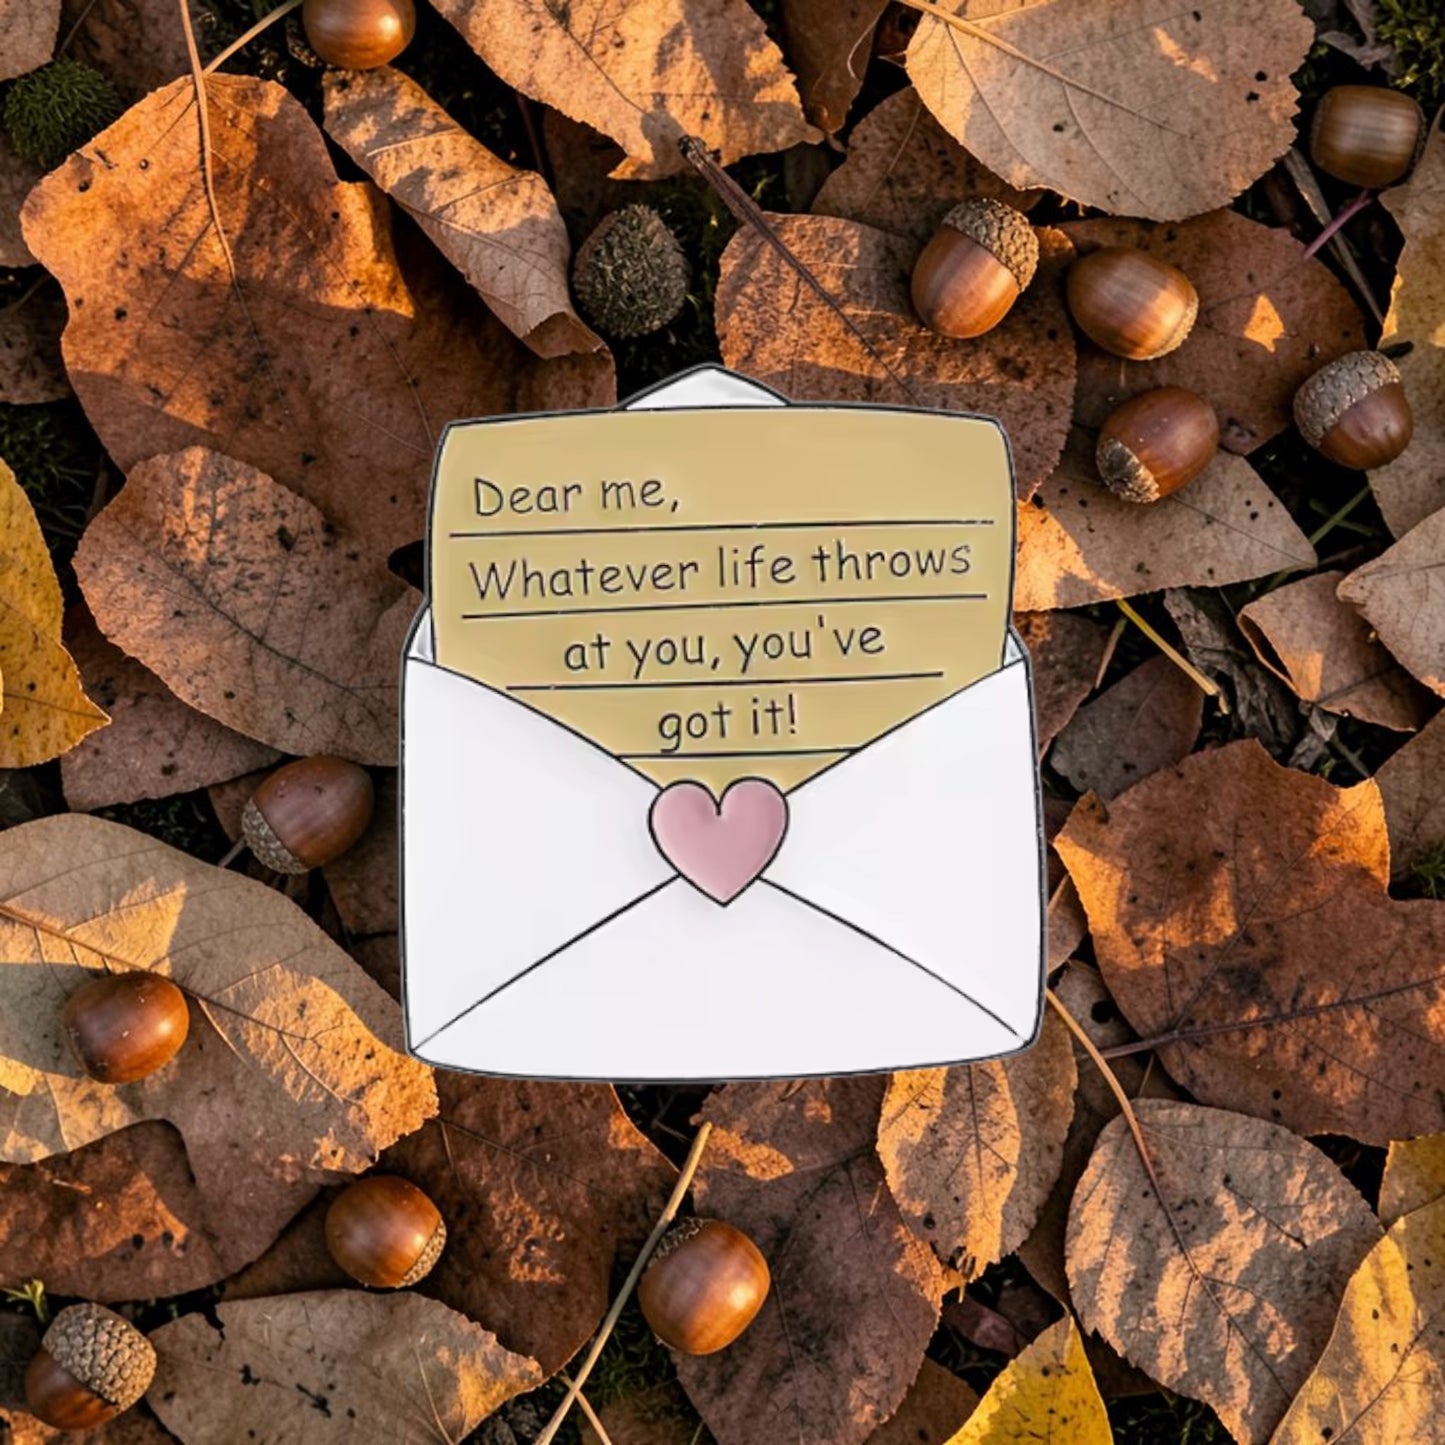 Dear me,
Whatever life throws
at you, you've
got it!